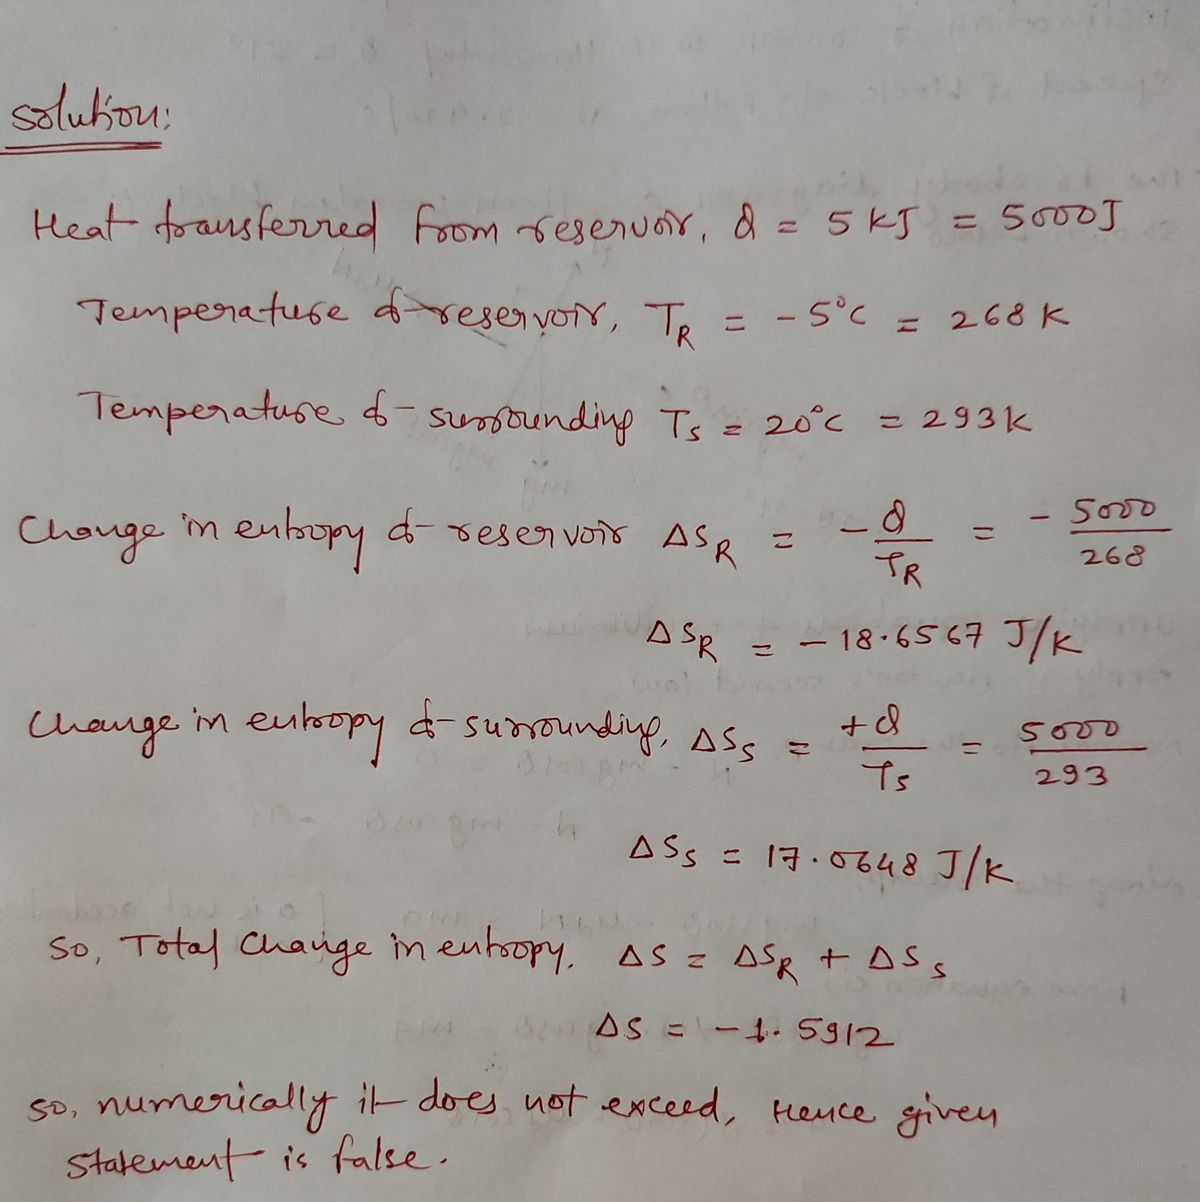 Solution:
Heat transferred from reservoir, Q = 5 kJ = 5000J
Temperature of reservoir, T_R = -5°C = 268 K
Temperature of surrounding T_S = 20°C = 293K
Change in entropy of reservoir ΔS_R = -Q/T_R = - 5000/268
ΔS_R = - 18.6567 J/K
Change in entropy of surrounding, ΔS_S = +Q/T_S = 5000/293
ΔS_S = 17.0648 J/K
So, Total change in entropy. ΔS = ΔS_R + ΔS_S
ΔS = -1.5912
so, numerically it does not exceed, Hence given
statement is false.